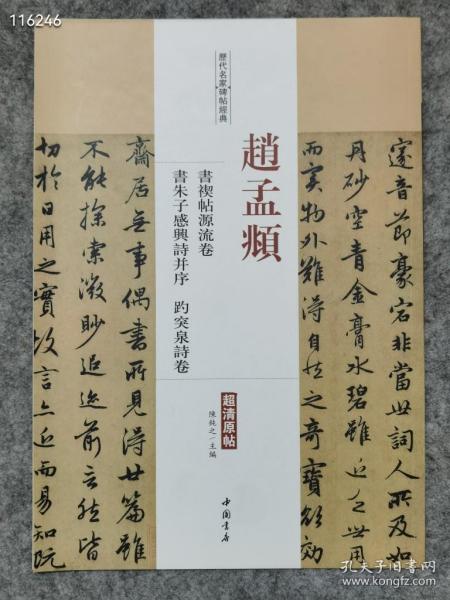 116246
歷代名家碑帖經典
趙孟頫
書禊帖源流卷
書朱子感興詩并序 趵突泉詩卷
超清原帖
陳鈍之/主編
中国书店
邃音節豪宕非當世詞人所及如
丹砂空青金膏水碧雖近乏世用
而實物外難得自然之奇寶欲效
齋居無事偶書所見得廿篇雖
不能探索微眇追迹前言然皆
切於日用之實故言亦近而易知既
孔夫子旧书网
www.kongfz.com